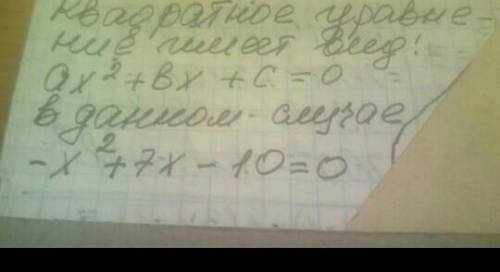 Квадратное уравне-
ние имеет вид:
ax²+вx+c=0
в данном случае
-x²+7x-10=0